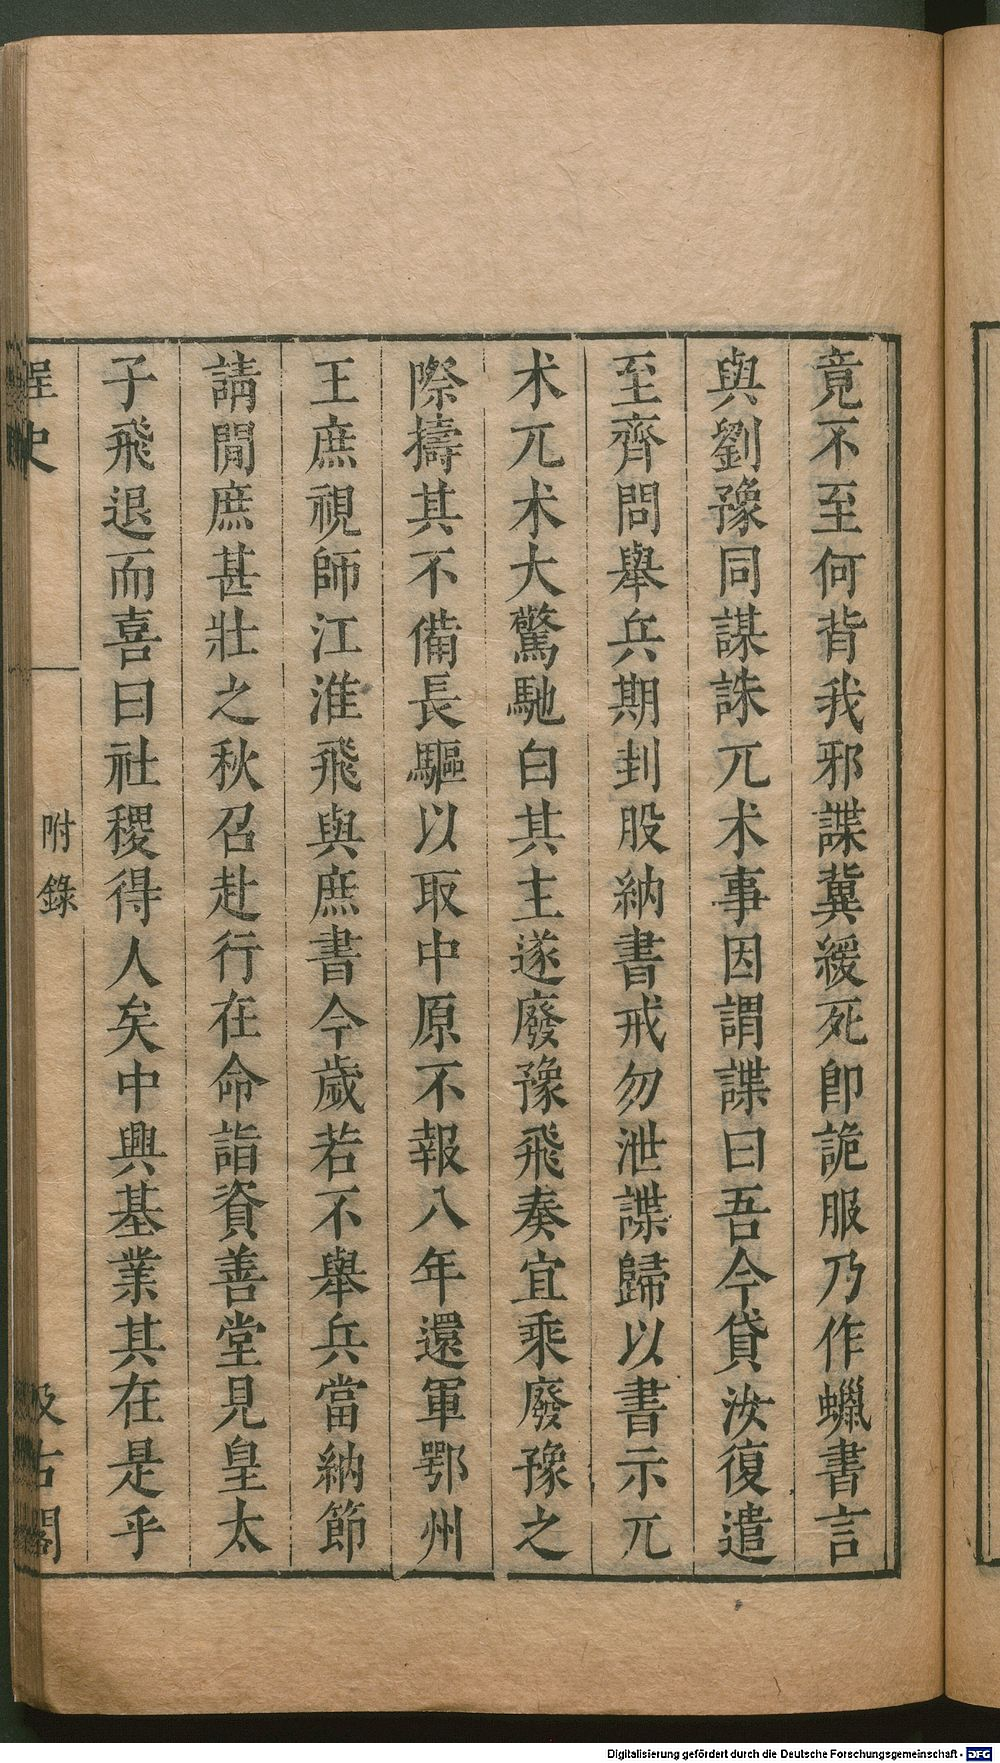 竟不至何背我邪諜冀緩死卽詭服乃作蠟書言
與劉豫同謀誅兀术事因謂諜曰吾今貸汝復遣
至齊問舉兵期刲股納書戒勿泄諜歸以書示兀
术兀术大驚馳白其主遂廢豫飛奏宜乘廢豫之
際擣其不備長驅以取中原不報八年還軍鄂州
王庶視師江淮飛與庶書今歲若不舉兵當納節
請閒庶甚壯之秋召赴行在命詣資善堂見皇太
子飛退而喜曰社稷得人矣中興基業其在是乎
桯史
附錄
汲古閣
Digitalisierung gefördert durch die Deutsche Forschungsgemeinschaft - DFG